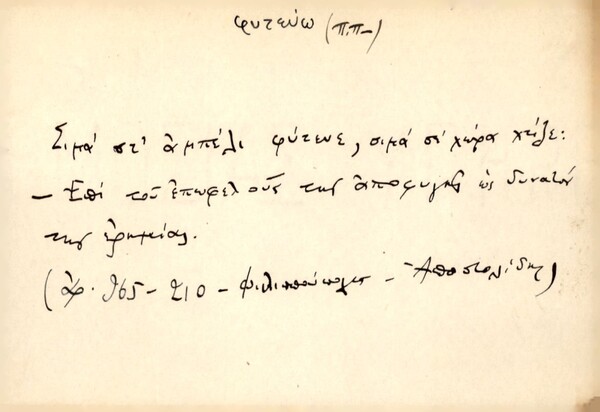 φυτεύω (π.π-)
Σιμά στ' ἀμπέλι φύτευε, σιμά σέ χώρα χτίζε:
- Ἐπί τοῦ ἐπωφελοῦς τῆς ἀποφυγῆς ὡς δυνατόν
τῆς ἐρημίας.
(ἀρ. 965 - 210 - Φιλιππούπολις - Ἀποστολίδης)